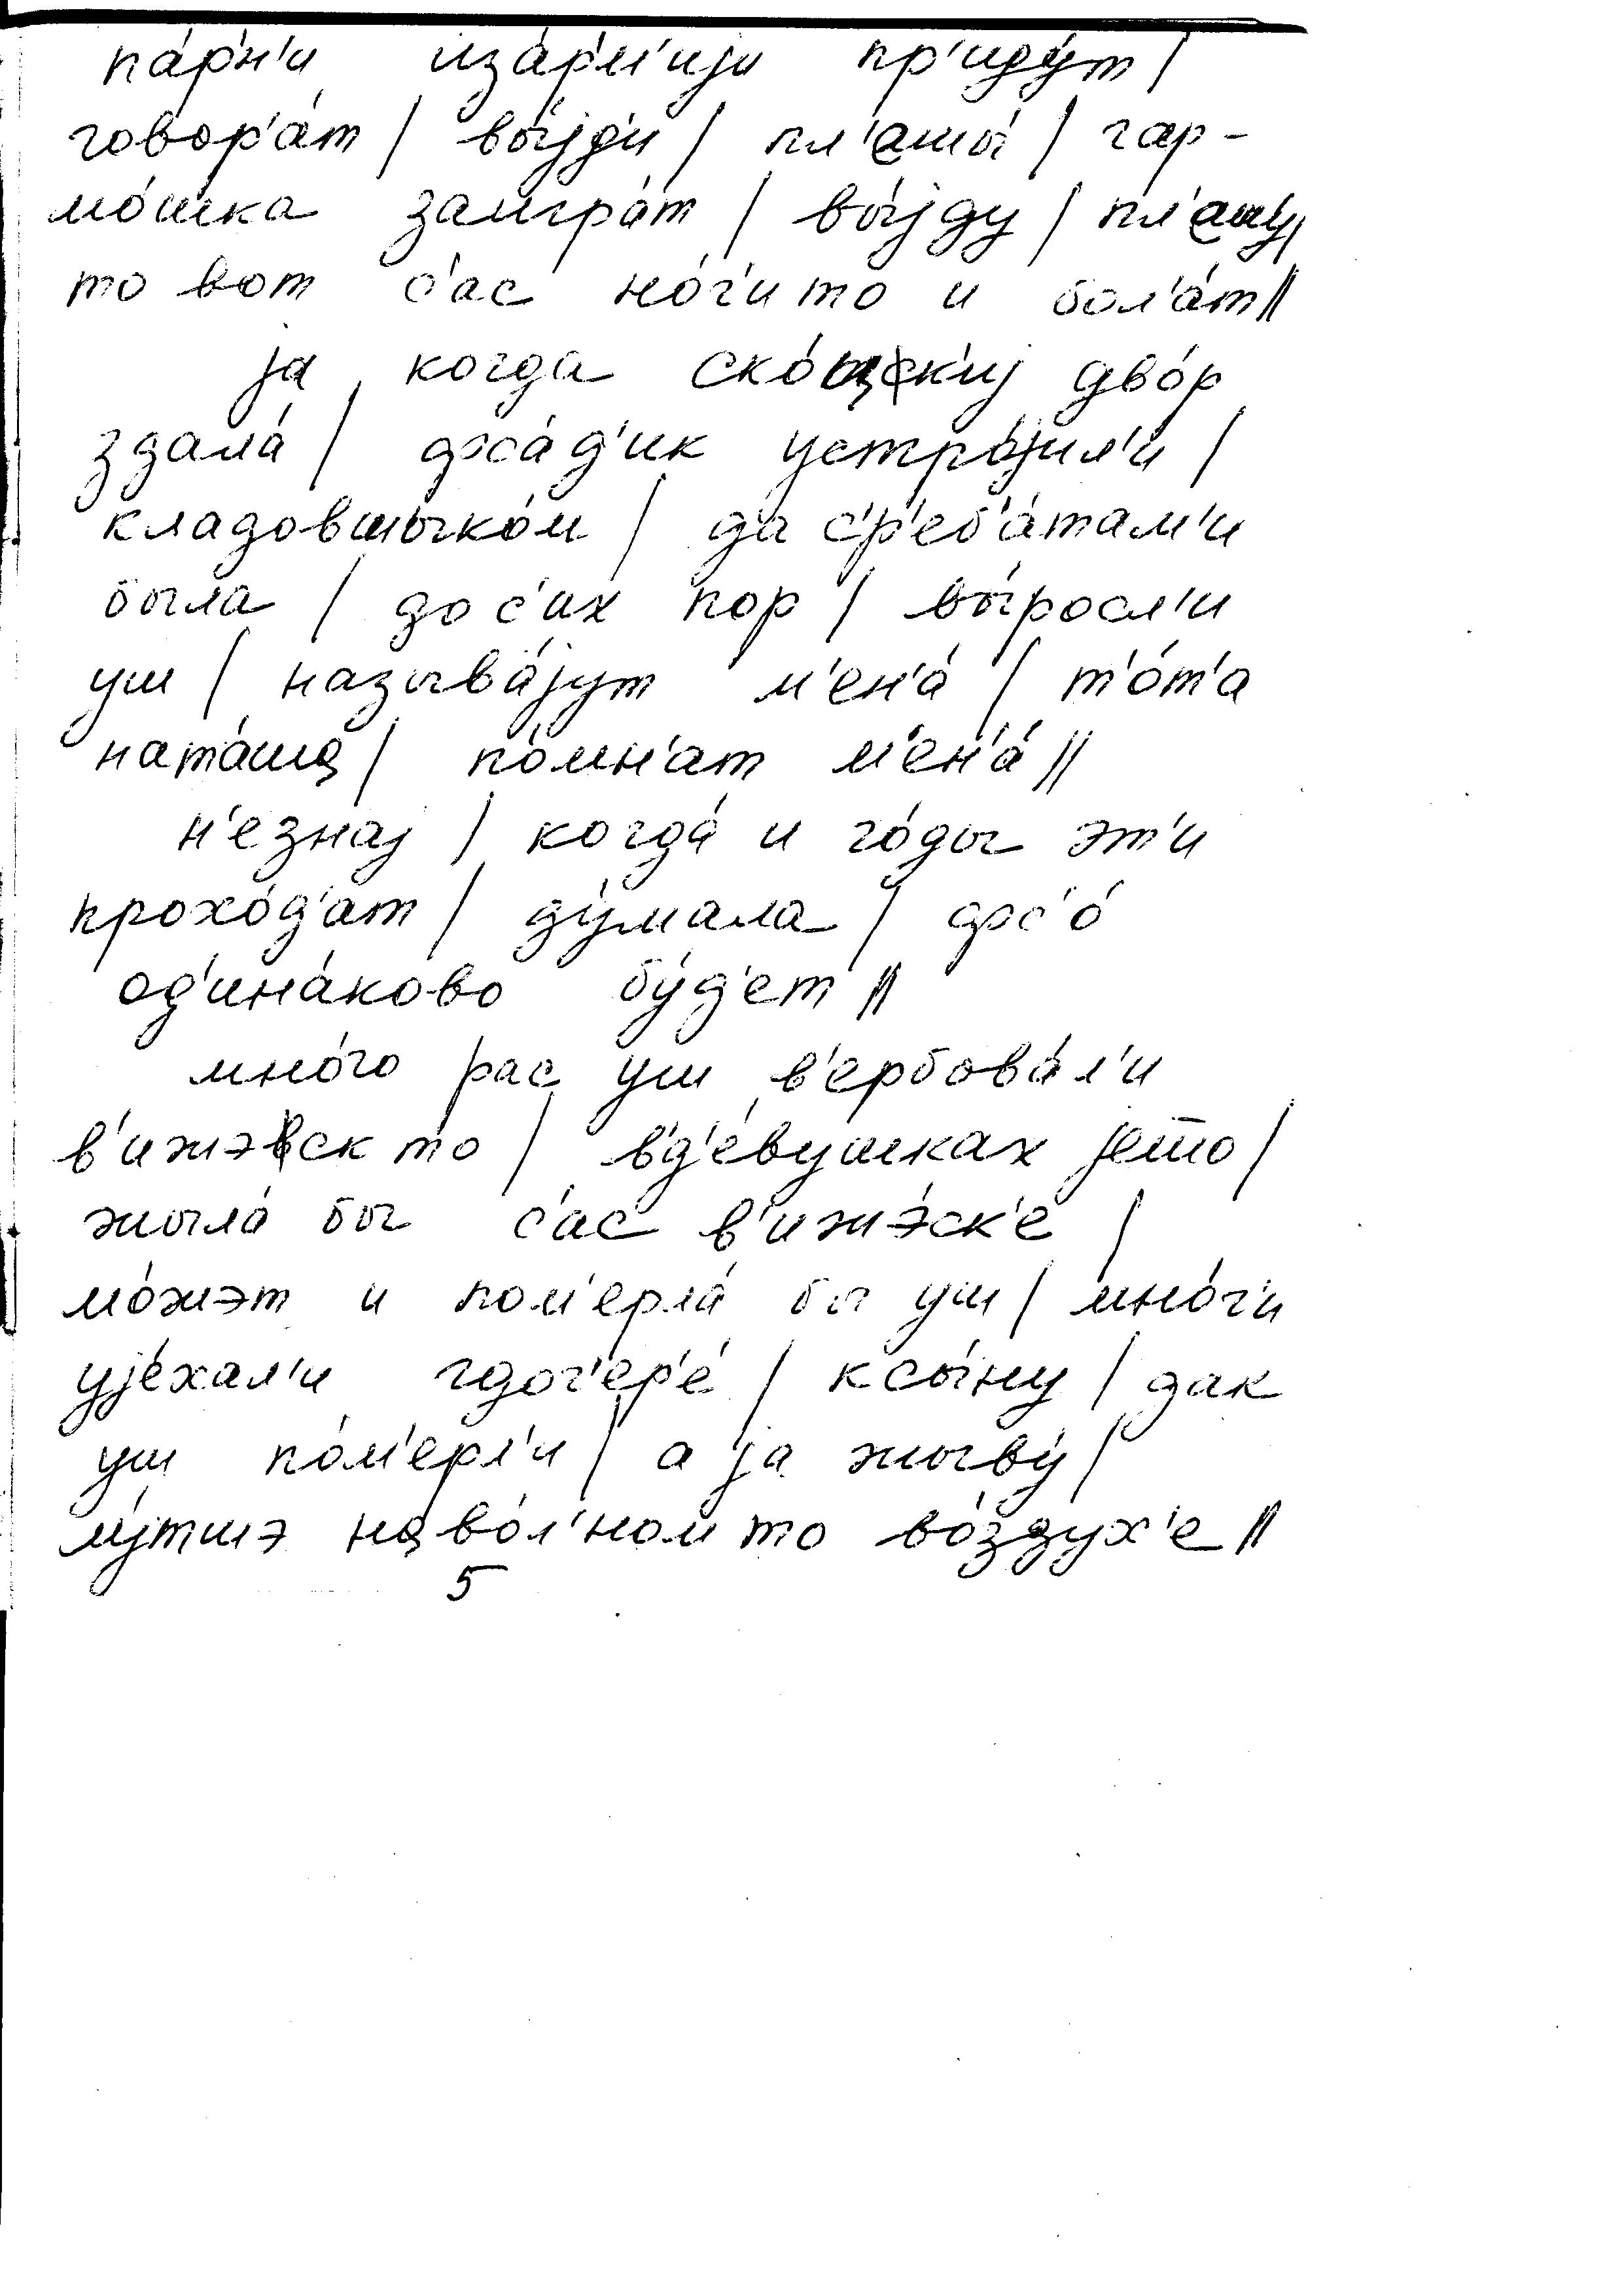 па́рн'и иза́рм'иjи пр'иду́т /
говор'а́т / вы́jд'и / пл'ашы́ / гар-
мо́шка заигра́т / вы́jду / пл'ашу́ /
то вот с'ас но́г'ито и бол'а́т //
jа когда ско́цк'иj дво́р
здала́ / фса́д'ик устро́jил'и /
кладовшыко́м / да с'р'еб'а́там'и
была / до с'их пор / вы́росл'и
уш / называ́jут м'ен'а́ / т'о́т'а
ната́ша / по́мн'ат м'ен'а́ //
н'езнаj / когда́ и го́ды эт'и
прохо́д'ат / ду́мала / фс'о́
од'ина́ково бу́д'ет //
мно́го рас уш в'ербова́л'и
в'ижэвск то / вд'е́вушках jешо /
жыла́ бы с'ас в'ижэ́ск'е /
мо́жэт и пом'ерла́ бы уш / мно́г'и
уjе́хал'и гдоч'ер'е́ / ксы́ну / дак
уш по́м'ерл'и / а jа жыву́ /
лу́тшэ на во́л'ном то во́здух'е //
5